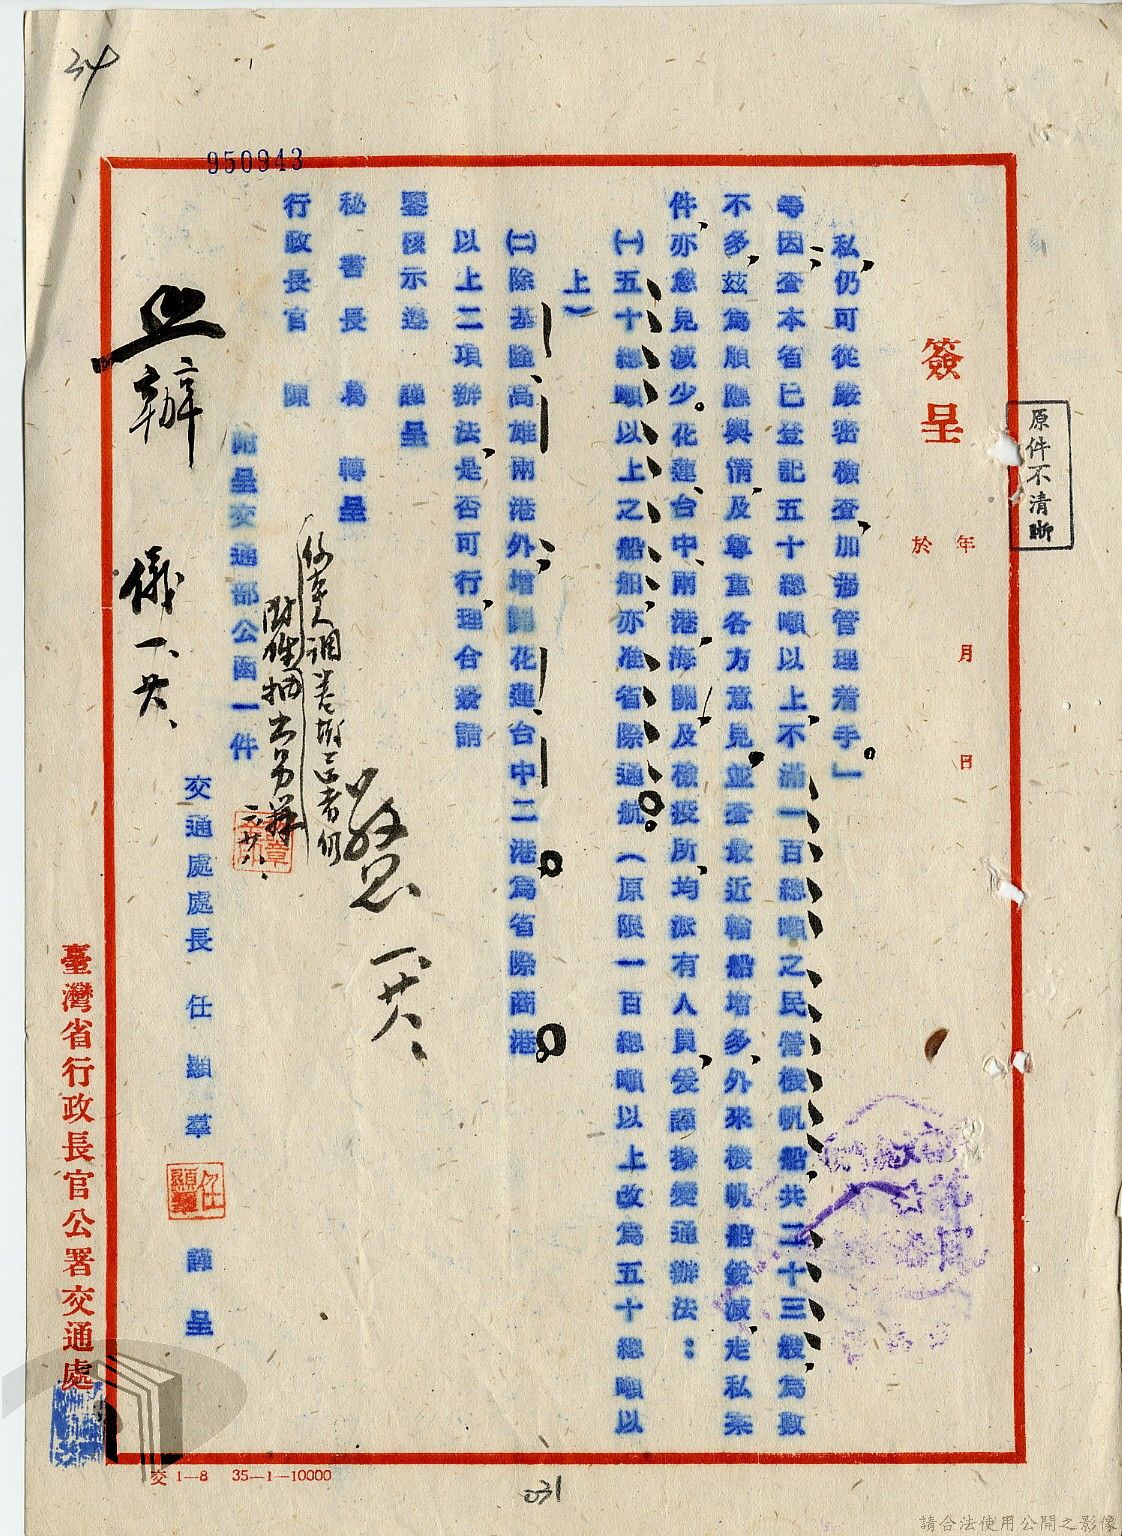 34
950943
原件不清晰
簽呈
年 月 日
於
私,仍可從嚴密檢查,加強管理着手。」
等因,查本省已登記五十總噸以上,不滿一百總噸之民營機帆船共二十三艘,為數
不多,茲為順應輿情,及尊重各方意見,並查最近輪船增多,外來機帆船銳減,走私案
件,亦愈見減少。花蓮、台中、兩港,海關及檢疫所,均派有人員,爰謹擬變通辦法:
㈠五十總噸以上之船舶,亦准省際通航(原限一百總噸以上改為五十總噸以
上)
㈡除基隆、高雄兩港外,增闢花蓮、台中二港為省際商港
以上二項辦法,是否可行,理合簽請
鑒核示遵 謹呈
秘書長 葛 轉呈
行政長官 陳
附呈交通部公函一件
交通處處長 任顯羣 謹呈
任顯羣
照辦 儀 一、廿八、
一、廿八、
臺灣省行政長官公署交通處
交 1—8 35—1—10000
031
請合法使用公開之影像